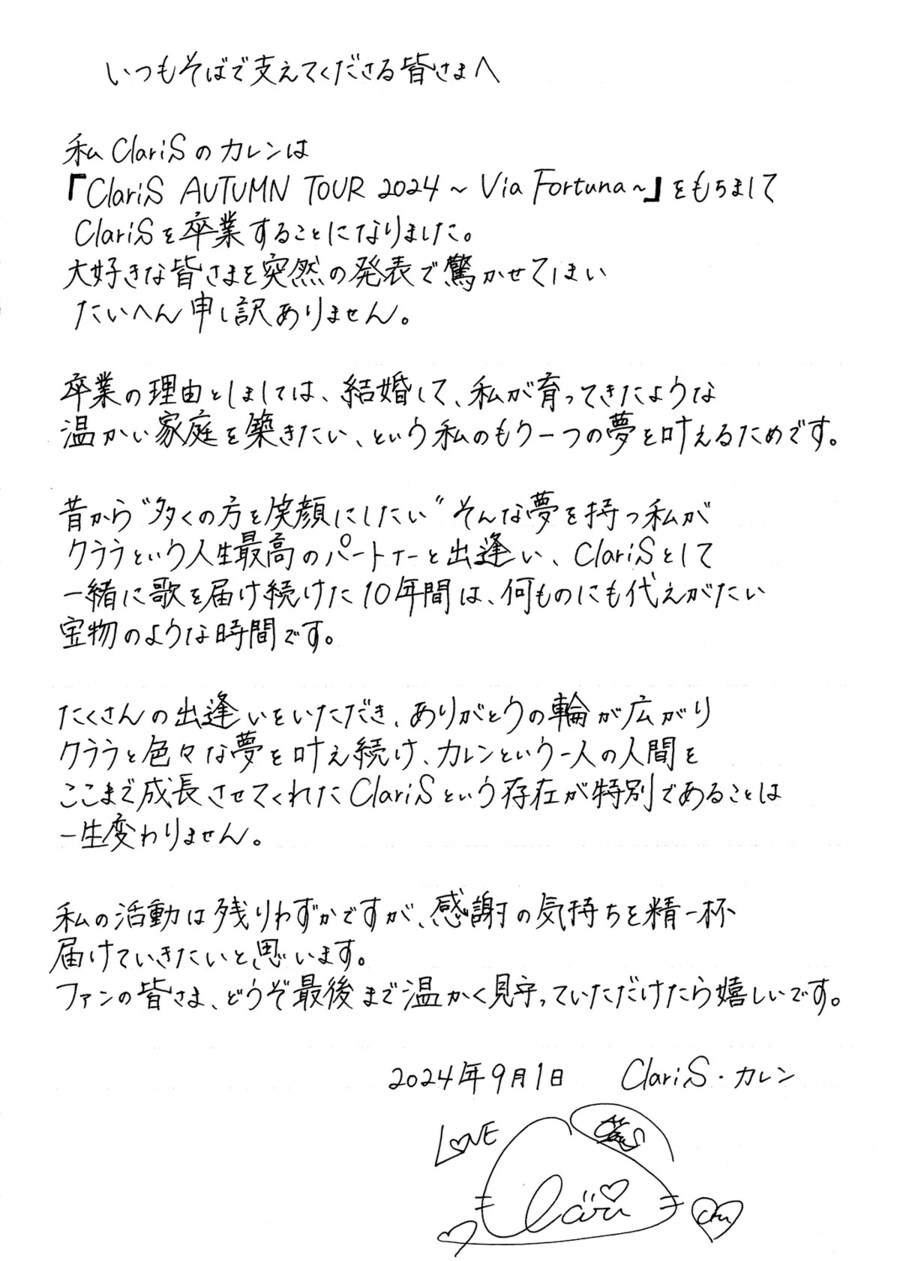 いつもそばで支えてくださる皆さまへ
私ClariSのカレンは
「ClariS AUTUMN TOUR 2024 ~ Via Fortuna~」をもちまして
ClariSを卒業することになりました。
大好きな皆さまを突然の発表で驚かせてしまい
たいへん申し訳ありません。
卒業の理由としましては、結婚して、私が育ってきたような
温かい家庭を築きたい、という私のもう一つの夢を叶えるためです。
昔から"多くの方を笑顔にしたい"そんな夢を持つ私が
クララという人生最高のパートナーと出逢い、ClariSとして
一緒に歌を届け続けた10年間は、何ものにも代えがたい
宝物のような時間です。
たくさんの出逢いをいただき、ありがとうの輪が広がり
クララと色々な夢を叶え続け、カレンという一人の人間を
ここまで成長させてくれたClariSという存在が特別であることは
一生変わりません。
私の活動は残りわずかですが、感謝の気持ちを精一杯
届けていきたいと思います。
ファンの皆さま、どうぞ最後まで温かく見守っていただけたら嬉しいです。
2024年9月1日 ClariS・カレン
LOVE